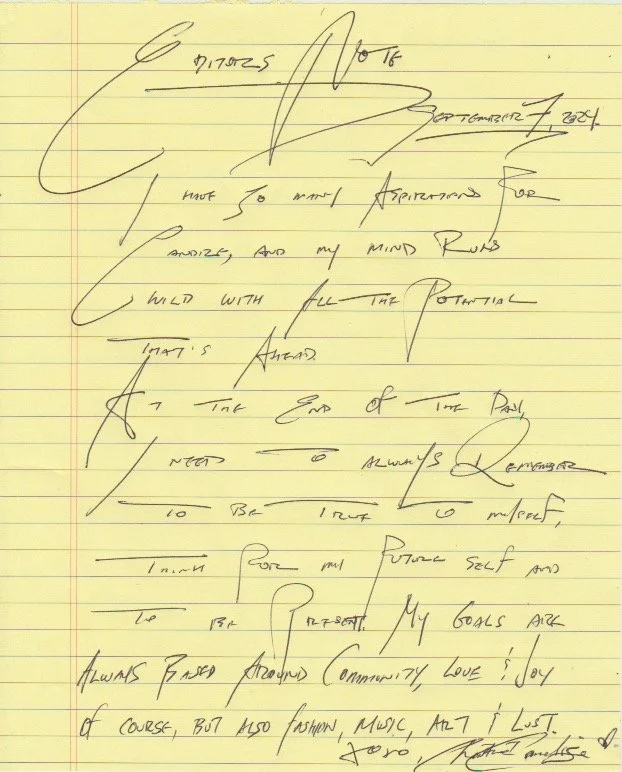 EDITORS NOTE
SEPTEMBER 7, 2024.
I HAVE SO MANY ASPIRATIONS FOR
CANDIZE, AND MY MIND RUNS
WILD WITH ALL THE POTENTIAL
THAT'S AHEAD.
AT THE END OF THE DAY,
I NEED TO ALWAYS REMEMBER
TO BE TRUE TO MYSELF,
THINK FOR MY FUTURE SELF AND
TO BE PRESENT. MY GOALS ARE
ALWAYS BASED AROUND COMMUNITY, LOVE & JOY
OF COURSE, BUT ALSO FASHION, MUSIC, ART & LUST.
XOXO,